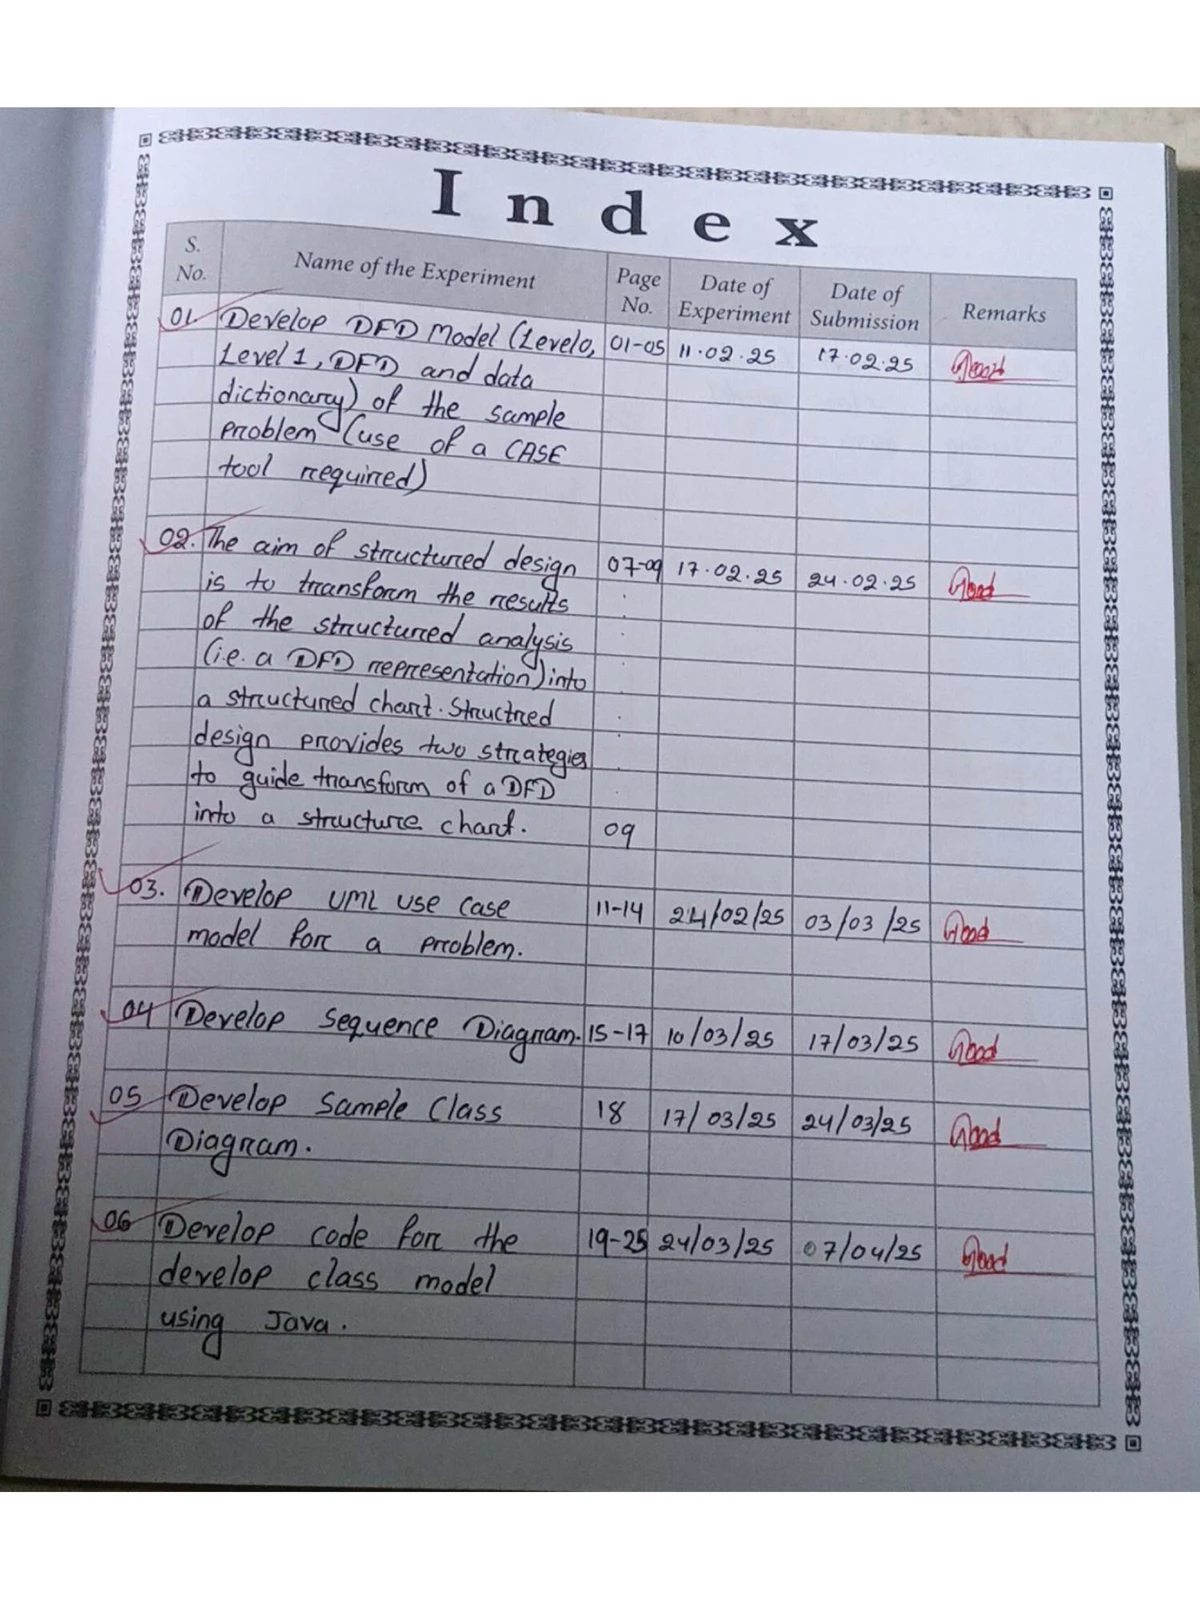 Index
S. No. Name of the Experiment Page No. Date of Experiment Date of Submission Remarks
01. Develop DFD Model (Level0, 01-05 11.02.25 17.02.25 Good
Level 1, DFD and data
dictionary) of the sample
problem (use of a CASE
tool required)
02. The aim of structured design 07-09 17.02.25 24.02.25 Good
is to transform the results
of the structured analysis
(i.e. a DFD representation) into
a structured chart. Structred
design provides two strategies
to guide transform of a DFD
into a structure chart. 09
03. Develop UML use case 11-14 24/02/25 03/03/25 Good
model for a problem.
04 Develop Sequence Diagram. 15-17 10/03/25 17/03/25 Good
05 Develop Sample Class 18 17/03/25 24/03/25 Good
Diagram.
06 Develop code for the 19-25 24/03/25 07/04/25 Good
develop class model
using Java.